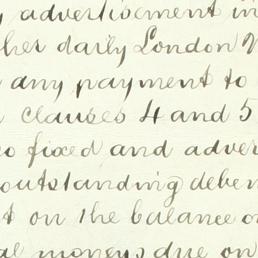 advertisement in
her daily London
any payment to
clauses 4 and 5
so fixed and adver
outstanding deben
t on the balance o
al moneys due on